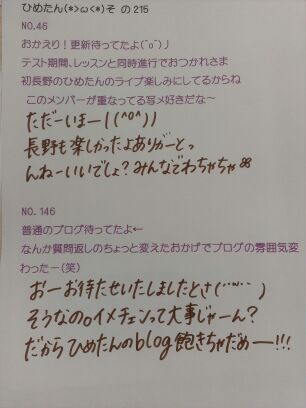 ひめたん(*>ω<*)そ の 215
NO.46
おかえり！更新待ってたよ(˘o˘)丿
テスト期間、レッスンと同時進行でおつかれさま
初長野のひめたんのライブ楽しみにしてるからね
このメンバーが重なってる写メ好きだな〜
ただーいまー!(^o^)丿
長野も楽しかったよありがーとっ
んねーいいでしょ?みんなでわちゃちゃ
NO. 146
普通のブログ待ってたよ←
なんか質問返しのちょっと変えたおかげでブログの雰囲気変
わったー(笑)
おーお待たせいたしましたとさ(¨ ¨ )
そうなの。イメチェンって大事じゃーん?
だからひめたんのblog飽きちゃだめー!!!